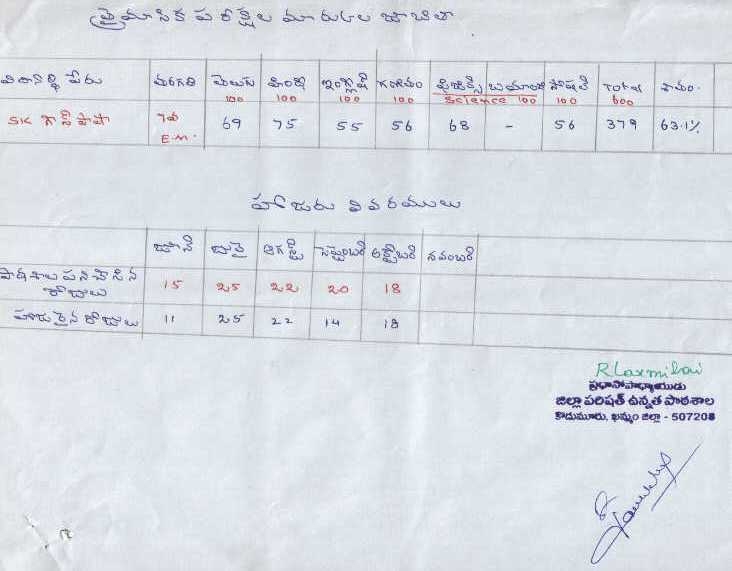 త్రైమాసిక పరీక్షల మార్కుల జాబితా
విద్యార్థి పేరు తరగతి తెలుగు హింది ఇంగ్లీష్ గణితం ఫిజిక్స్ బయాలజి సోషల్ Total శాతం.
100 100 100 100 Science 100 100 600
SK గౌస్ పాషా 7వ 69 75 55 56 68 - 56 379 63.1%
E.M.
హాజరు వివరములు
జూన్ జులై ఆగస్ట్ సెప్టెంబర్ అక్టోబర్ నవంబర్
పాఠశాల పనిచేసిన
రోజులు 15 25 22 20 18
హాజరైన రోజులు 11 25 22 14 18
R Laxmibai
ప్రధానోపాధ్యాయుడు
జిల్లా పరిషత్ ఉన్నత పాఠశాల
కొదుమూరు, ఖమ్మం జిల్లా - 507208